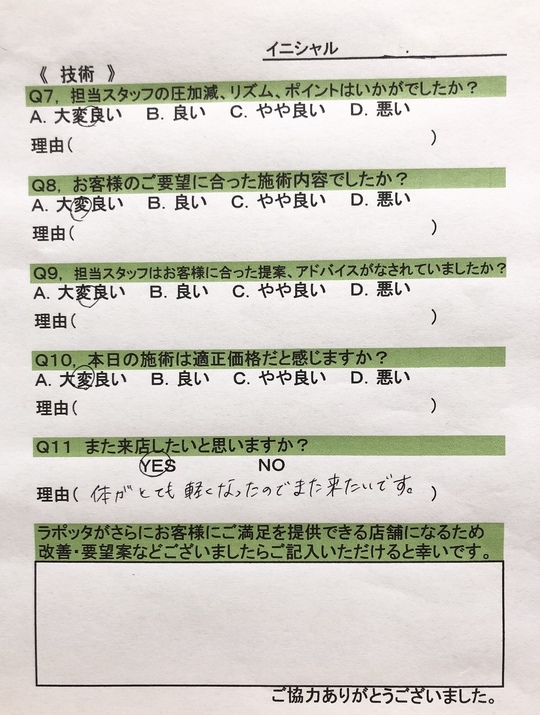 イニシャル
《 技術 》
Q7, 担当スタッフの圧加減、リズム、ポイントはいかがでしたか？
A. 大変良い B. 良い C. やや良い D. 悪い
理由( )
Q8, お客様のご要望に合った施術内容でしたか？
A. 大変良い B. 良い C. やや良い D. 悪い
理由( )
Q9, 担当スタッフはお客様に合った提案、アドバイスがなされていましたか？
A. 大変良い B. 良い C. やや良い D. 悪い
理由( )
Q10, 本日の施術は適正価格だと感じますか？
A. 大変良い B. 良い C. やや良い D. 悪い
理由( )
Q11 また来店したいと思いますか？
YES NO
理由( 体がとても軽くなったのでまた来たいです。 )
ラポッタがさらにお客様にご満足を提供できる店舗になるため
改善・要望案などございましたらご記入いただけると幸いです。
ご協力ありがとうございました。